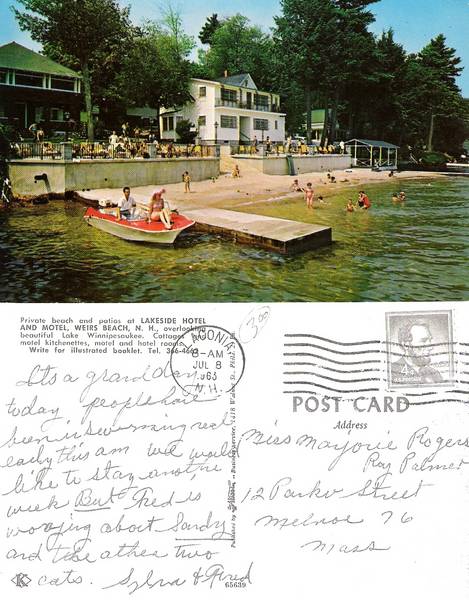 Private beach and patios at LAKESIDE HOTEL
AND MOTEL, WEIRS BEACH, N. H., overlooking
beautiful Lake Winnipesaukee. Cottages
motel kitchenettes, motel and hotel rooms.
Write for illustrated booklet. Tel. 366-4663
LACONIA
8-AM
JUL 8
1963
N.H.
3.00
4¢
U.S. POSTAGE
POST CARD
Address
Its a grand day
today people have
been in swimming real
early this am we would
like to stay another
week But Fred is
worring about Sandy
and the other two
cats. Sylvia & Fred
Miss Marjorie Rogers
Ray Palmer
12 Parker Street
Melrose 76
Mass
K
65639